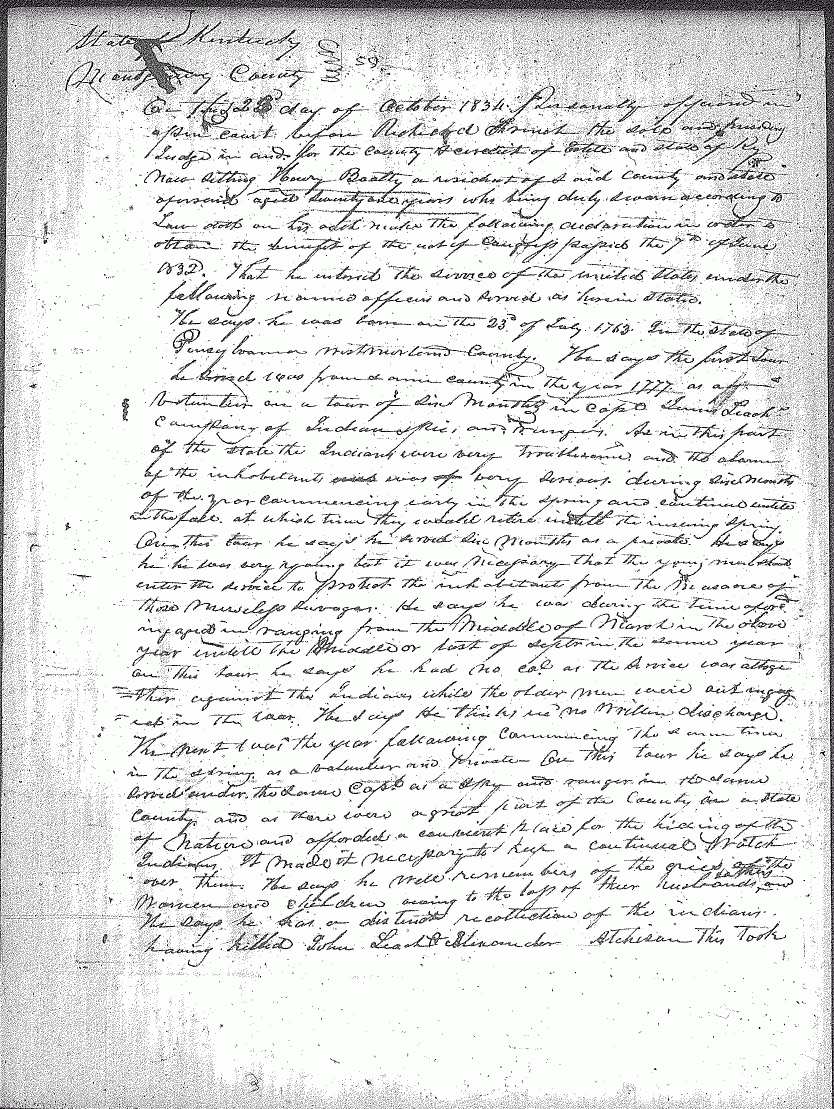 State of Kentucky
Montgomery County 59
On this 23d day of October 1834. Personally appeared in
open court before Richard French the sole and presiding
Judge in and for the County & circuit of Estle and state of Ky
now sitting Henry Beatty a resident of said County and state
aforesaid aged seventy one years who being duly sworn according to
Law doth on his oath make the following declaration in order to
obtain the benefit of the act of Congress passed the 7th of June
1832. That he entered the service of the united States under the
following named officers and served as herein stated.
He says he was born on the 23d of July 1763. In the state of
Pensylvania County. He says the first tour
he served was from same county in the year 1777 as a
volunteer on a tour of Six Months in Capt Leach
Company of Indian spies and Rangers. As in this part
of the state the Indians were very troublesome and the alarm
of the inhabitants was very serious during six months
of the year commencing early in the spring and continued untill
in the fall at which time they would retire untill the insuing spring
On this tour he says he served six months as a private. He says
he was very young but it was necessary that the young men should
enter the service to protect the inhabitants from the of
those Merciless Savages. He says he was during the time
ingaged in ranging from the Middle of March in the above
year untill the Middle or last of Septr in the same year
on this tour he says he had no Col as the service was altoge
ther against the Indians while the older men were out ingag
ed in the war. He says He thinks no Written discharge.
The next was the year following commencing the same time
in the spring as a volunteer and private On this tour he says he
served under the same Capt as a Spy and ranger in the same
County and as there were a great part of the County in a State
of Nature and afforded a convenient place for the hiding of the
Indians It made it necessary to keep a continual Watch
over them. He says he well remembers of the grief of the
Women and Children owing to the loss of their husbands and fathers
He says he has a distinct recollection of the indians
having killed John Leach & Alexander Atcheson This took